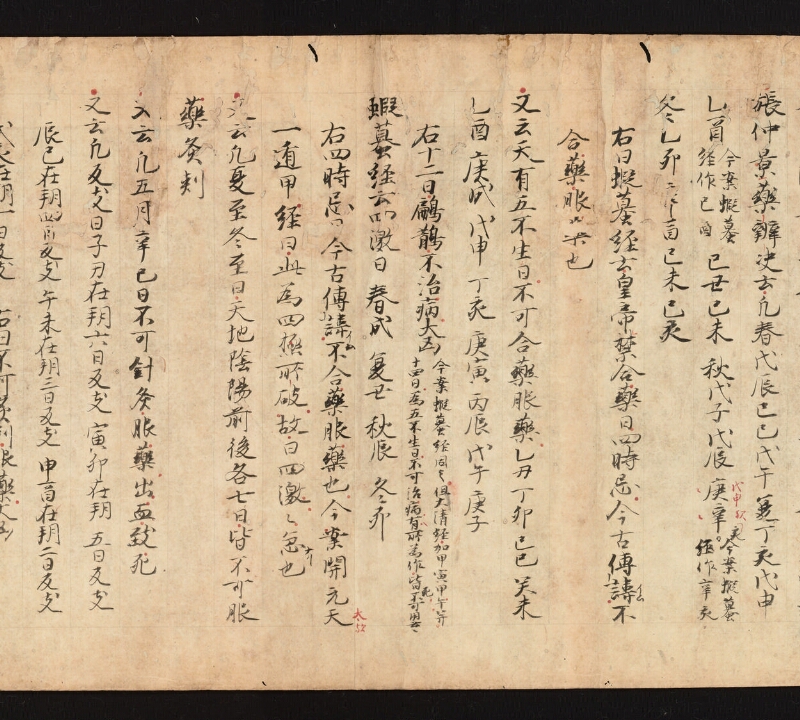 張仲景藥辨决云凡春戊辰己巳戊午夏丁亥戊申
乙酉今案蝦蟇經作己酉己丑己未秋戊子戊辰庚辛今案蝦蟇經作辛亥
戊申 亥
冬乙卯 酉己未己亥
右日蝦蟇經云皇帝禁合藥日四時忌今古傳諱不
合藥服必 也
又云天有五不生日不可合藥服藥乙丑丁卯己巳癸未
乙酉庚戌戊申丁亥庚寅丙辰戊午庚子
右十二日鶣鵲不治病大凶今案蝦蟇經同之但大清經加甲寅甲午并十四日為五不生日不可治病有所為作皆不可用 死
蝦蟇經云四激日春戌夏丑秋辰冬卯
右四時忌日今古傳諱不合藥服藥也今案開元天
一遁甲經曰此為四極所破故曰四激々 也
又云凡夏至冬至日天地陰陽前後各七日皆不可服
藥灸刾
又云凡五月辛巳日不可針灸服藥出血致死
又云凡反支日子丑在朔六日反支寅卯在朔五日反支
辰巳在朔四日反支午未在朔三日反支申酉在朔二日反支
戌亥在朔一日反支右日不可灸刾服藥大凶